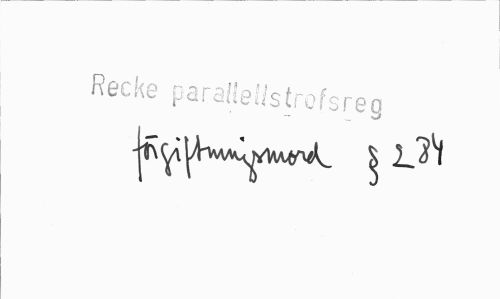 Recke parallellstrofsreg
förgiftningsmord § 284